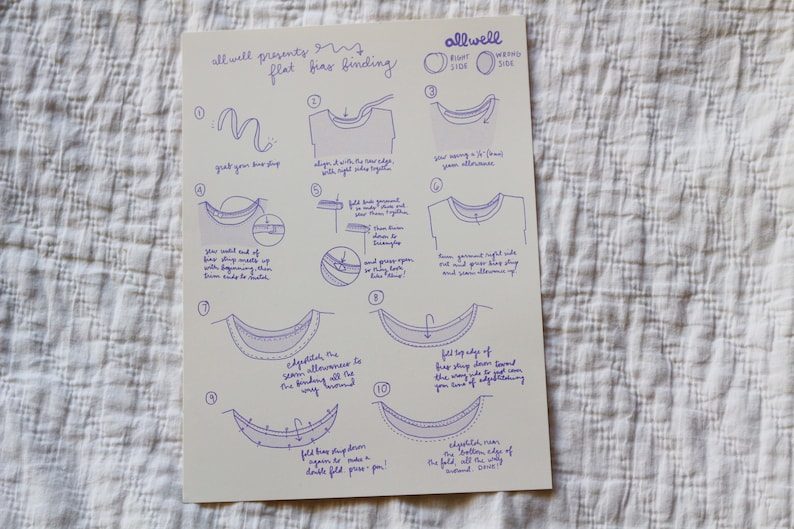 allwell presents
flat bias binding
allwell
RIGHT
SIDE
WRONG
SIDE
1
grab your bias strip
2
align it with the raw edge,
with right sides together
3
sew using a
seam allowance
4
sew until end of
bias strip meets up
with beginning, then
trim ends to match
5
fold back garment
so ends stick out
sew them together
then trim
down to
triangles
and press open
so they look
like this!
6
turn garment right side
out and press bias strip
and seam allowance up!
7
edgestitch the
seam allowances to
the binding all the
way around
8
fold top edge of
bias strip down toward
the wrong side to just cover
your line of edgestitching
9
fold bias strip down
again to make a
double fold. press + pin!
10
edgestitch near
the bottom edge of
the fold, all the way
around. DONE!